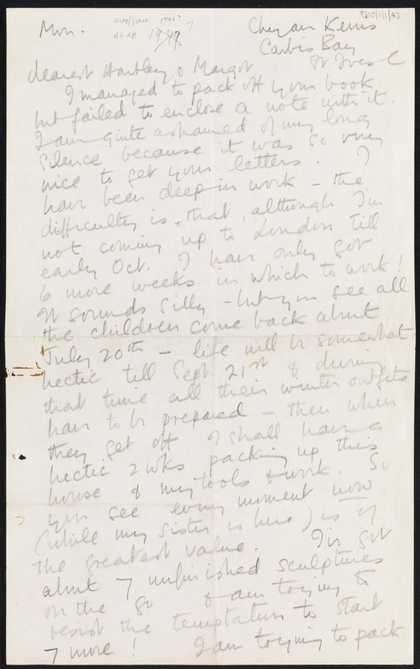 Mon. Chy an Kerris
1949? Carbis Bay
St Ives C
dearest Hartley & Margot
I managed to pack off your book
but failed to enclose a note with it.
I am quite ashamed of my long
silence because it was so very
nice to get your letters. I
have been deep in work – the
difficulty is, that, although I'm
not coming up to London till
early Oct. I have only got
6 more weeks in which to work!
It sounds silly – but you see all
the children come back about
July 20th – life will be somewhat
hectic till Sept 21st & during
that time all their winter outfits
have to be prepared – then when
they get off I shall have a
hectic 2 wks packing up this
house & my tools & work. So
you see every moment now
(while my sister is here) is of
the greatest value. I've got
about 7 unfinished sculptures
on the go & am trying to
resist the temptation to start
7 more! I am trying to pack